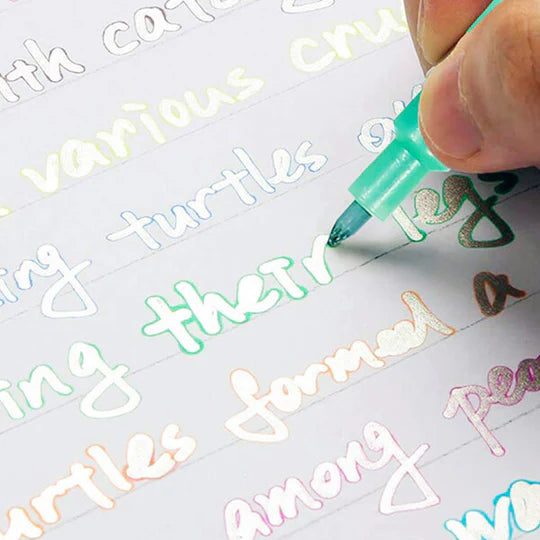 with cat
various cru
ing turtles o
ing their legs
urtles formed a
among pea
wo